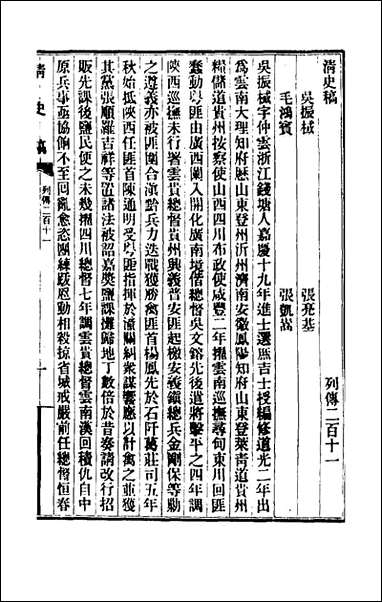 清史稿
列傳二百十一
吳振棫
張亮基
毛鴻賓
張凱嵩
吳振棫字仲雲浙江錢塘人嘉慶十九年進士選庶吉士授編修道光二年出
為雲南大理知府歷山東登州沂州濟南安徽鳳陽知府山東登萊青道貴州
糧儲道貴州按察使山西四川布政使咸豐二年擢雲南巡撫尋甸東川回匪
蠢動粵匪由廣西闌入開化廣南境偕總督吳文鎔先後遣將擊平之四年調
陝西巡撫未行署雲貴總督貴州興義普安匪起檄安義鎮總兵金剛保等勦
之遵義亦被匪圍合滇黔兵力迭戰獲勝禽匪首楊鳳先於石阡葛莊司五年
秋始抵陝西任匪首陳通明受粵匪指揮於潼關糾衆謀響應以計禽之並獲
其黨張順羅吉祥等置諸法被詔嘉獎鹽課攤歸地丁數倍於昔奏請改行招
販先課後鹽民便之未幾擢四川總督七年調雲貴總督雲南漢回積仇自中
原兵事亟協餉不至回亂愈恣團練跋扈動相殺掠省城戒嚴前任總督恒春
清史稿
列傳二百十一
一